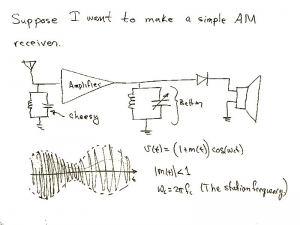 Suppose I want to make a simple AM
receiver.
Amplifier
cheesy
Better
v(t) = (1+m(t)) cos(ωct)
|m(t)|<1
ωc = 2πfc (The station frequency)
t